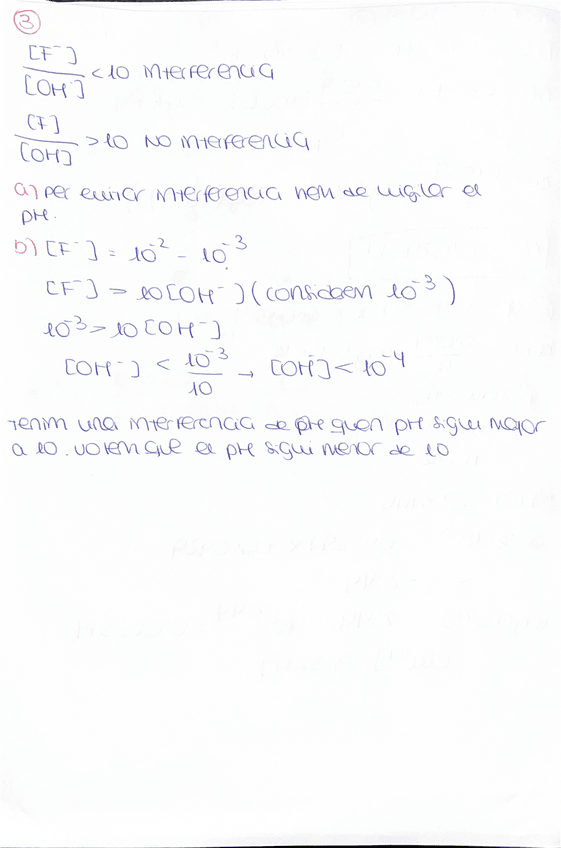 3
[F⁻]/[OH⁻] < 10 interferencia
[F]/[OH] > 10 no interferencia
a) per evitar interferencia hem de vigilar el
pH.
b) [F⁻] = 10⁻² - 10⁻³
[F⁻] = 10[OH⁻] (considerem 10⁻³)
10⁻³ = 10[OH⁻]
[OH⁻] < 10⁻³/10 → [OH⁻] < 10⁻⁴
Tenim una interferencia de pH quan pH sigui major
a 10. Volem que el pH sigui menor de 10